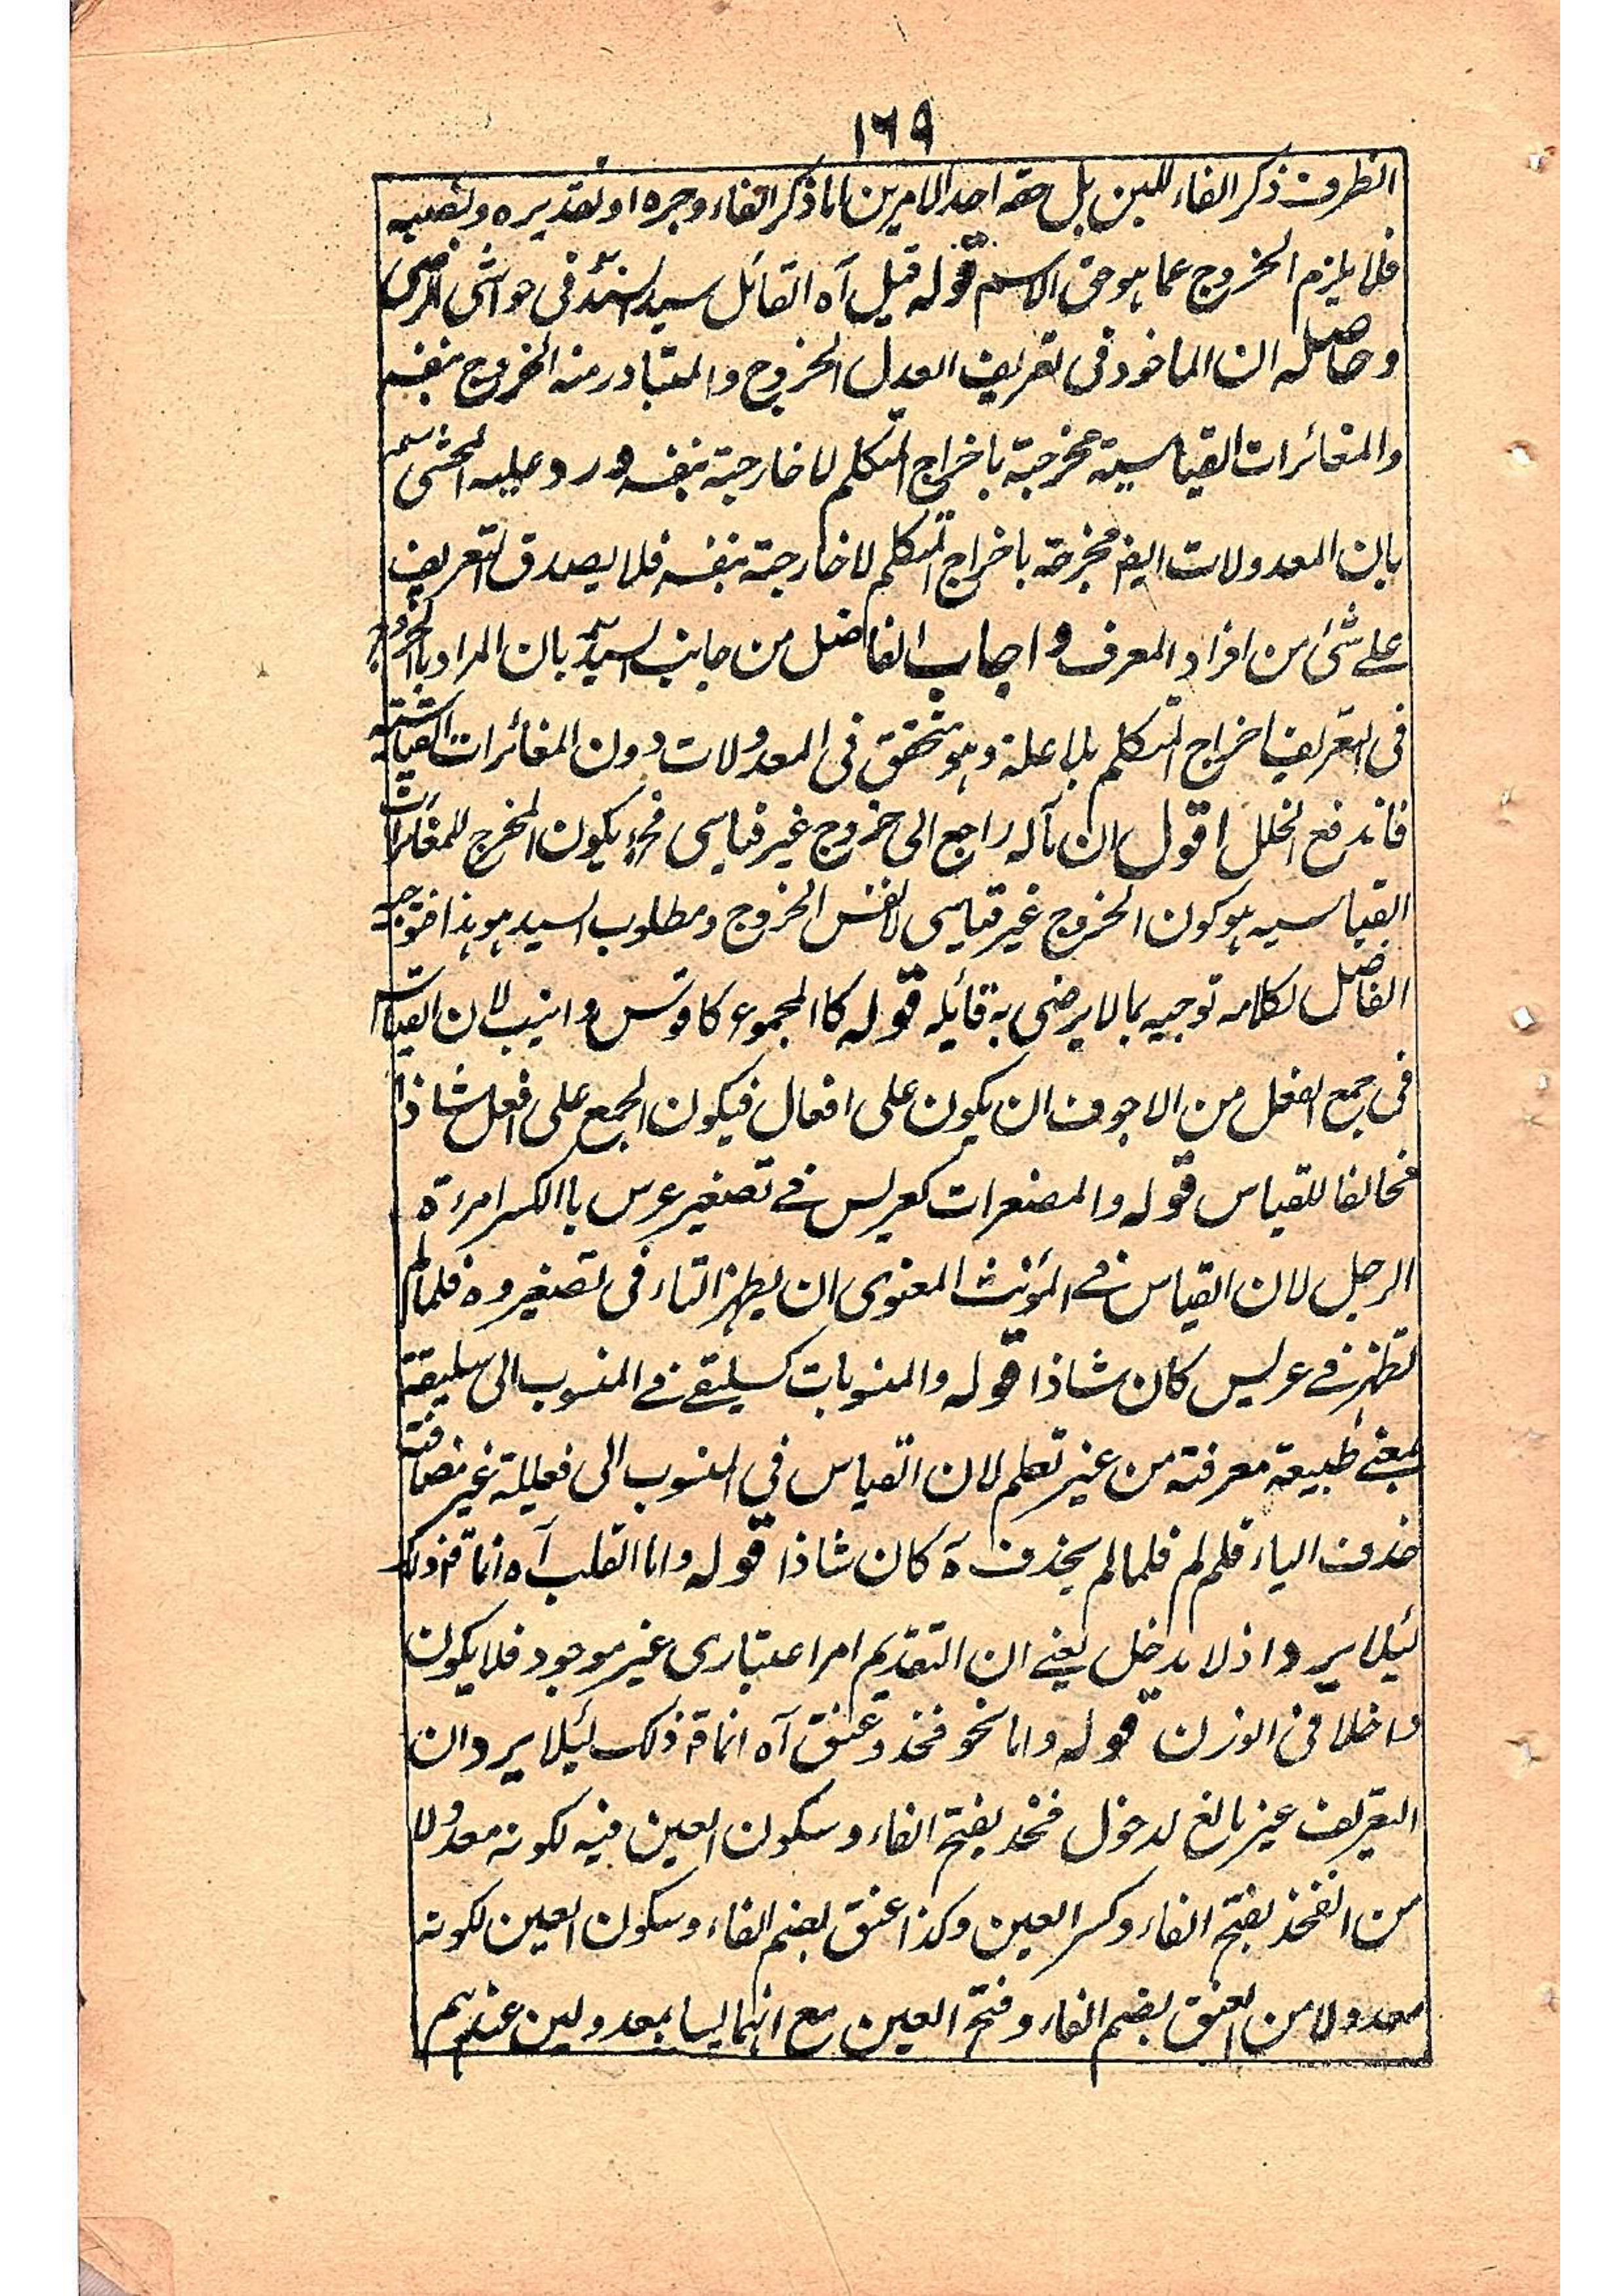 ١٦٩
الظرف ذكر الفاء للبين بل حقه احد الامرين اما ذكر الفاء وجره او تقديره ونصبه
فلا يلزم الخروج عما هو حق الاسم قوله قيل آه القائل سيد السند فى حواشى الرضى
وحاصله ان الماخوذ فى تعريف العدل الخروج والمتبادر منه الخروج بنفسه
والمغائرات القياسية مخرجة باخراج المتكلم لا خارجة بنفسه ورد عليه المحشى
بان المعدولات ايضا مخرجة باخراج المتكلم لا خارجة بنفسه فلا يصدق التعريف
على شئ من افراد المعرف واجاب الفاضل من جانب السيد بان المراد باالخروج
فى التعريف اخراج المتكلم بلا علة وهو متحقق فى المعدولات دون المغائرات القياسية
فاندفع الخلل اقول ان مآله راجع الى خروج غير قياسى فح يكون المخرج للمغائرات
القياسيه هو كون الخروج غير قياسى لا نفس الخروج ومطلوب السيد هو هذا فتوجيه
الفاضل لكلامه توجيه بما لا يرضى به قائله قوله كا المجموع كاقوس وانيب لان القياس
فى جمع الفعل من الاجوف ان يكون على افعال فيكون الجمع على افعل شاذا
مخالفا للقياس قوله والمصغرات كعريس فى تصغير عرس باالكسر امرءة
الرجل لان القياس فى المؤنث المعنوى ان يظهر التاء فى تصغيره فلما لم
تظهر فى عريس كان شاذا قوله والمنسوبات كسليقى فى المنسوب الى سليقة
بمعنى طبيعة معرفته من غير تعلم لان القياس فى المنسوب الى فعيلة غير مضاعفة
حذف الياء فلم لم فلما لم يحذف ه كان شاذا قوله واما القلب آه انما قه ذلك
لئيلا يرد اذ لا يدخل يعنى ان التقديم امر اعتبارى غير موجود فلا يكون
داخلا فى الوزن قوله واما نحو فخذ وعنق آه انما قه ذلك لئيلا يرد ان
التعريف غير مانع لدخول فخذ بفتح الفاء وسكون العين فيه لكونه معدولا
من الفخذ بفتح الفاء وكسر العين وكذا عنق بضم الفاء وسكون العين لكونه
معدولا من العنق بضم الفاء وفتح العين مع انهما ليسا بمعدولين عندهم